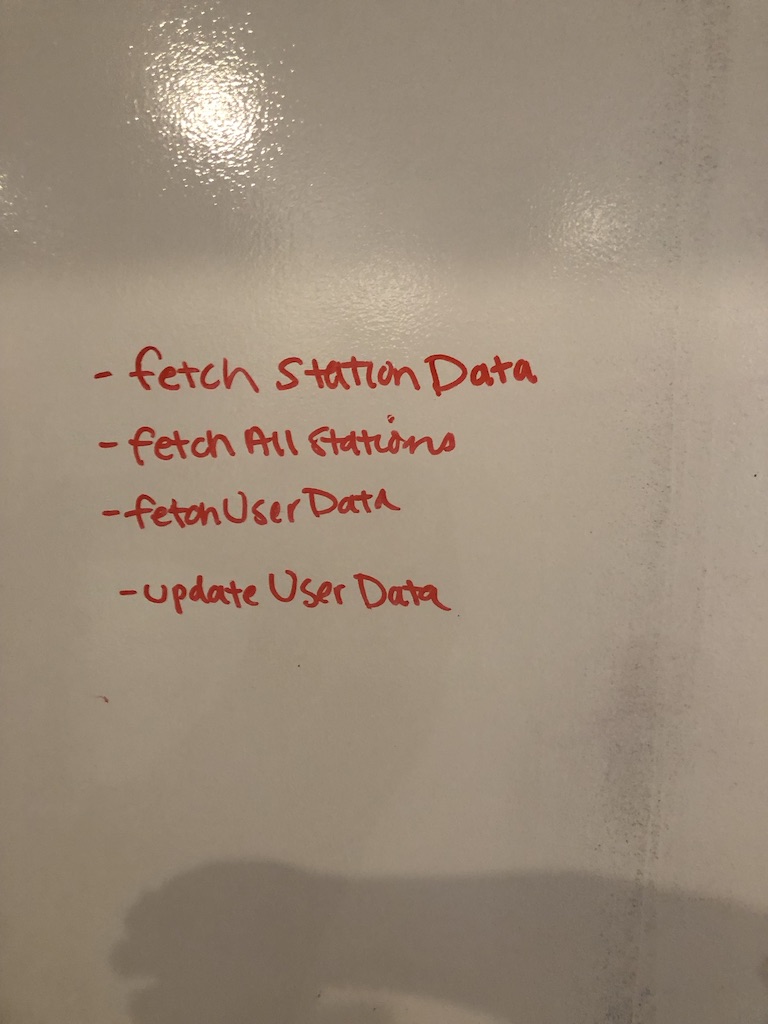 - fetch Station Data
- fetch All Stations
- fetch User Data
- update User Data